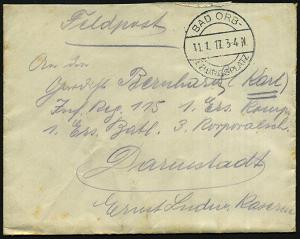 Feldpost
BAD ORB-
11.1.17.3-4 N.
An den
Bernhardt (Karl)
Inf. Reg. 115 1. Ers. Komp.
1. Ers. Batl. 3. Korporalsch.
Darmstadt
Ernst Ludw. Kaserne